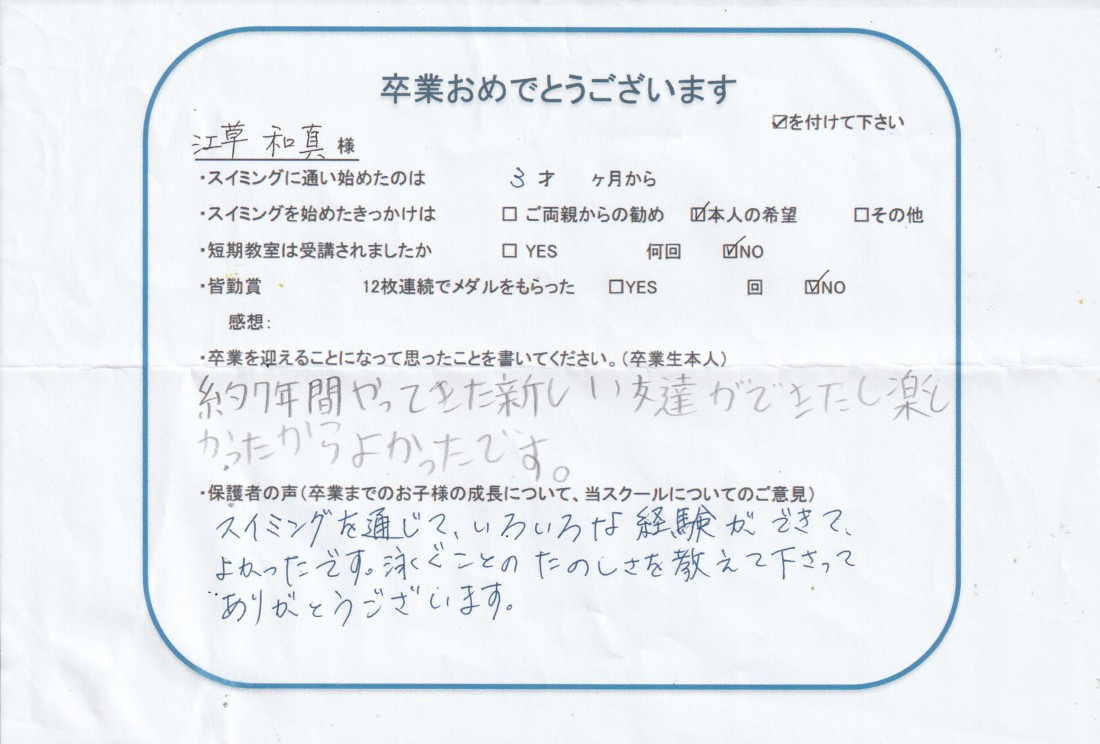 卒業おめでとうございます
☑を付けて下さい
江草 和真 様
・スイミングに通い始めたのは 3 才 ヶ月から
・スイミングを始めたきっかけは □ ご両親からの勧め ☑本人の希望 □その他
・短期教室は受講されましたか □ YES 何回 ☑NO
・皆勤賞 12枚連続でメダルをもらった □YES 回 ☑NO
感想：
・卒業を迎えることになって思ったことを書いてください。（卒業生本人）
約7年間やってきた新しい友達ができたし楽し
かったからよかったです。
・保護者の声（卒業までのお子様の成長について、当スクールについてのご意見）
スイミングを通じて、いろいろな経験ができて、
よかったです。泳ぐことのたのしさを教えて下さって
ありがとうございます。